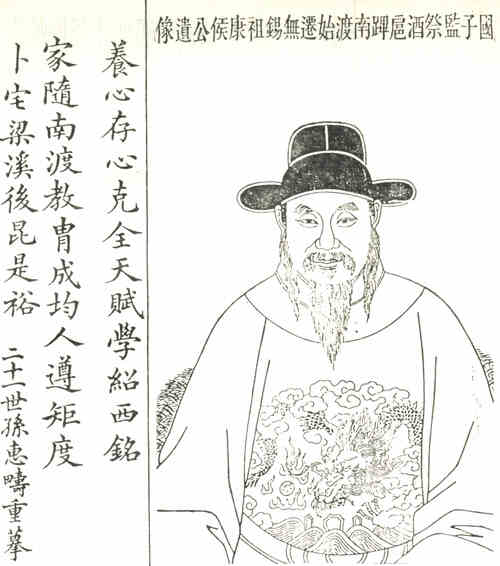 國子監祭酒扈蹕南渡始遷無錫祖康侯公遺像
養心存心克全天賦學紹西銘
家隨南渡教冑成均人遵矩度
卜宅梁溪後昆是裕 二十一世孫惠疇重摹